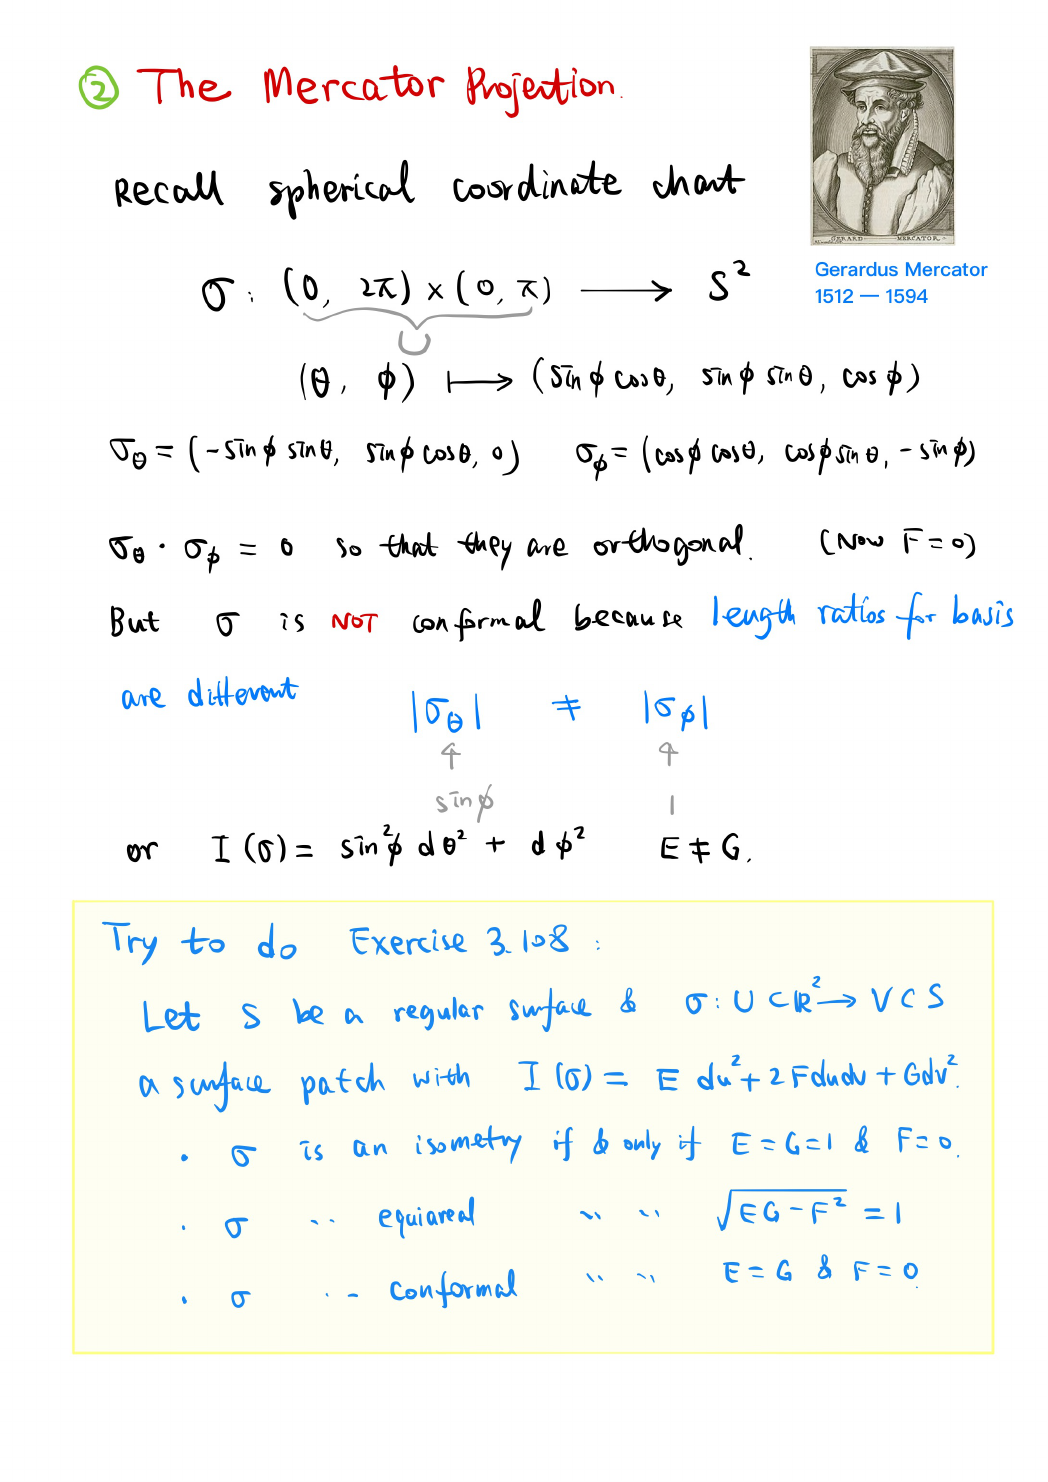 ② The Mercator Projection.
GERARD MERCATOR
Recall spherical coordinate chart
Gerardus Mercator
1512 — 1594
σ : (0, 2π) × (0, π) ⟶ S²
U
(θ, ϕ) ⟼ (sinϕ cosθ, sinϕ sinθ, cosϕ)
σ_θ = (-sinϕ sinθ, sinϕ cosθ, 0) σ_ϕ = (cosϕ cosθ, cosϕ sinθ, -sinϕ)
σ_θ · σ_ϕ = 0 so that they are orthogonal. (Now F = 0)
But σ is NOT conformal because length ratios for basis
are different |σ_θ| ≠ |σ_ϕ|
↑ ↑
sinϕ 1
or I(σ) = sin²ϕ dθ² + dϕ² E ≠ G.
Try to do Exercise 3.108 :
Let S be a regular surface & σ : U ⊂ ℝ² ⟶ V ⊂ S
a surface patch with I(σ) = E du² + 2Fdudv + Gdv².
· σ is an isometry if & only if E = G = 1 & F = 0.
· σ ·· equiareal '' '' √(EG - F²) = 1
· σ ·· conformal '' '' E = G & F = 0.